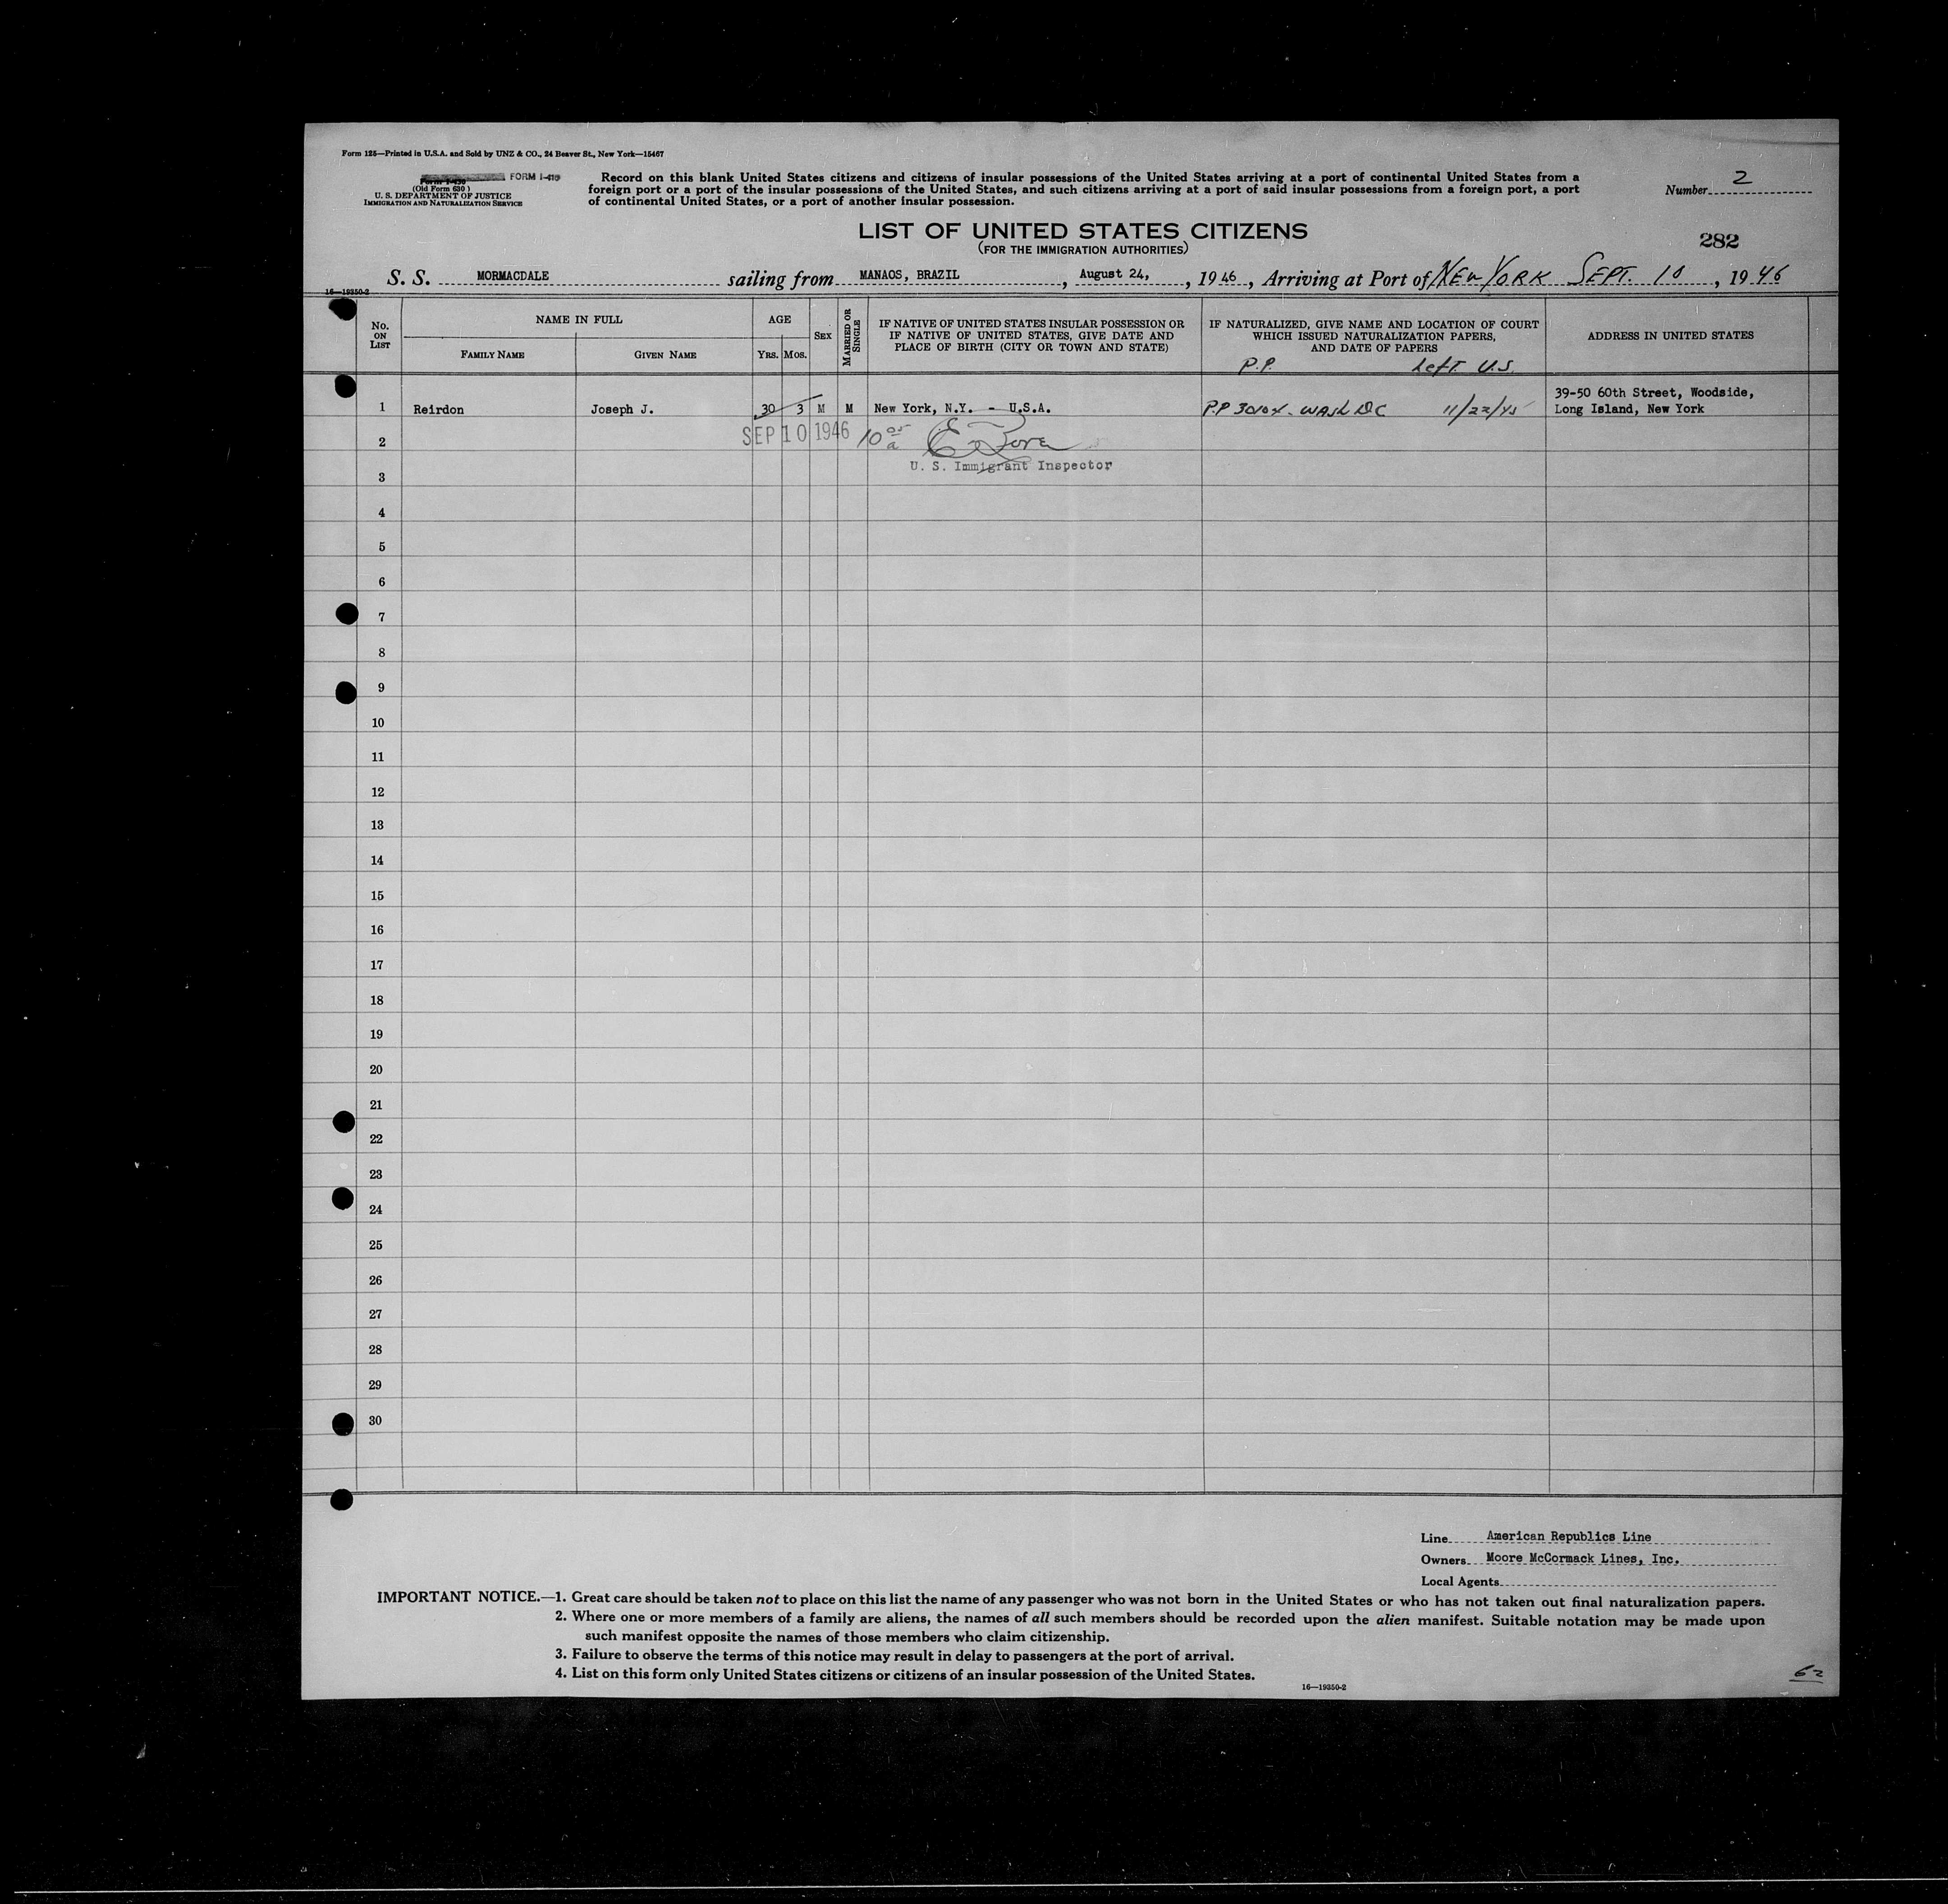 Form 125—Printed in U.S.A. and Sold by UNZ & CO., 24 Beaver St., New York—15467
FORM I-418
(Old Form 630)
U. S. DEPARTMENT OF JUSTICE
IMMIGRATION AND NATURALIZATION SERVICE
Record on this blank United States citizens and citizens of insular possessions of the United States arriving at a port of continental United States from a
foreign port or a port of the insular possessions of the United States, and such citizens arriving at a port of said insular possessions from a foreign port, a port
of continental United States, or a port of another insular possession.
Number 2
LIST OF UNITED STATES CITIZENS
(FOR THE IMMIGRATION AUTHORITIES)
282
S. S. MORMACDALE sailing from MANAOS, BRAZIL, August 24, 1946, Arriving at Port of NEW YORK SEPT. 10, 1946
16—19350-2
No. ON LIST
NAME IN FULL
FAMILY NAME
GIVEN NAME
AGE
YRS. MOS.
SEX
MARRIED OR SINGLE
IF NATIVE OF UNITED STATES INSULAR POSSESSION OR
IF NATIVE OF UNITED STATES, GIVE DATE AND
PLACE OF BIRTH (CITY OR TOWN AND STATE)
IF NATURALIZED, GIVE NAME AND LOCATION OF COURT
WHICH ISSUED NATURALIZATION PAPERS,
AND DATE OF PAPERS
P.P. Left U.S.
ADDRESS IN UNITED STATES
1 Reirdon Joseph J. 30 3 M M New York, N.Y. - U.S.A. P.P WASH DC 11/22/45 39-50 60th Street, Woodside,
Long Island, New York
2 SEP 10 1946
U. S. Immigrant Inspector
3
4
5
6
7
8
9
10
11
12
13
14
15
16
17
18
19
20
21
22
23
24
25
26
27
28
29
30
Line American Republics Line
Owners Moore McCormack Lines, Inc.
Local Agents
IMPORTANT NOTICE.—1. Great care should be taken not to place on this list the name of any passenger who was not born in the United States or who has not taken out final naturalization papers.
2. Where one or more members of a family are aliens, the names of all such members should be recorded upon the alien manifest. Suitable notation may be made upon
such manifest opposite the names of those members who claim citizenship.
3. Failure to observe the terms of this notice may result in delay to passengers at the port of arrival.
4. List on this form only United States citizens or citizens of an insular possession of the United States.
16—19350-2
62